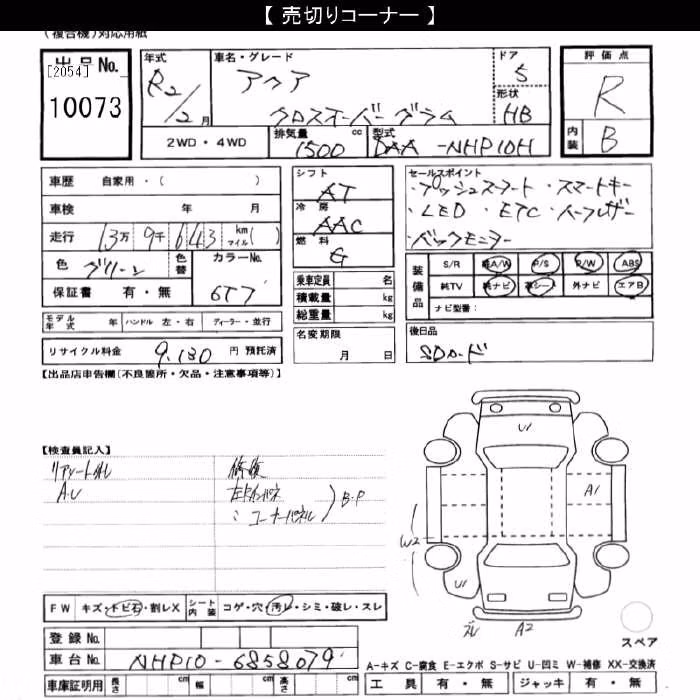 【 売切りコーナー 】
(複合機)対応用紙
出品No.
[2054]
10073
年式
R2/2月
車名・グレード
アクア
クロスオーバーグラム
ドア
5
形状
HB
評価点
R
内装
B
2WD・4WD
排気量
1500
cc
型式
DAA-NHP10H
車歴 自家用・( )
車検 年 月
走行 13万 9千 643 km マイル( )
色 グリーン 色替 カラーNo.
6T7
保証書 有・無
モデル年式 年 ハンドル 左・右 ディーラー・並行
リサイクル料金 9,130 円 預託済
シフト
AT
冷房
AAC
燃料
G
乗車定員 名
積載量 kg
総重量 kg
名変期限
月 日
セールスポイント
・プッシュスタート ・スマートキー
・LED ・ETC ・ハーフレザー
・バックモニター
装備品
S/R 純A/W P/S P/W ABS
純TV 純ナビ 革シート 外ナビ エアB
ナビ型番:
後日品
SDカード
【出品店申告欄(不良箇所・欠品・注意事項等)】
【検査員記入】
A.U
修復
コーナーパネル
B.P
U1
A1
W2
U1
A2
スペア
FW キズ・トビ石・割レX シート内装 コゲ・穴・汚レ・シミ・破レ・スレ
登録No.
車台No. NHP10-6858079
車庫証明用 長さ cm 幅 cm 高さ cm
A-キズ C-腐食 E-エクボ S-サビ U-凹ミ W-補修 XX-交換済
工具 有・無 ジャッキ 有・無